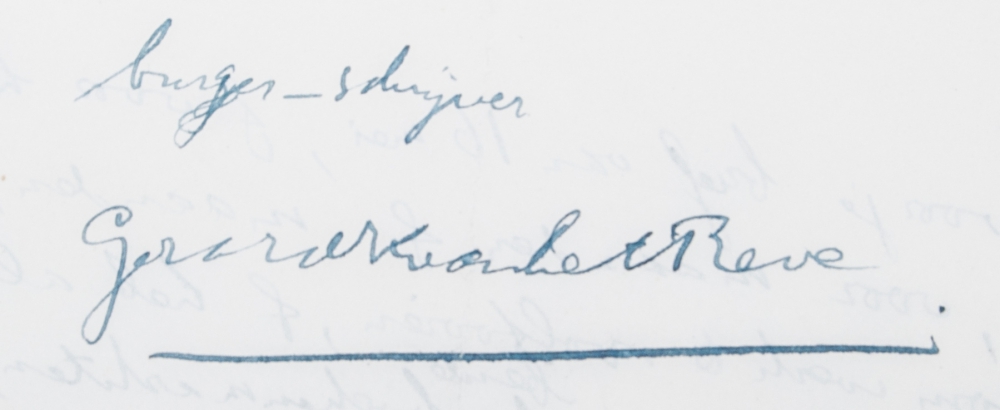 burger-schrijver
Gerard Kvanhet Reve